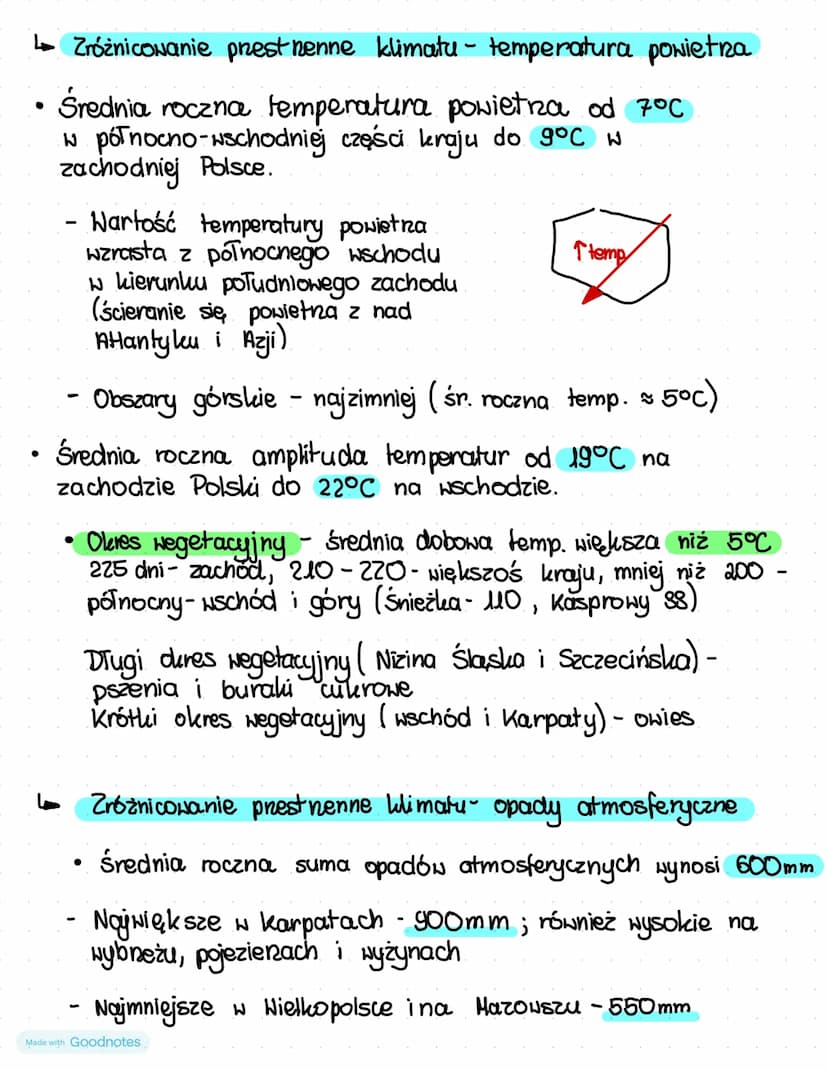 ↳ Zróżnicowanie przestrzenne klimatu - temperatura powietrza
• Średnia roczna temperatura powietrza od 7°C
w północno-wschodniej części kraju do 9°C w
zachodniej Polsce.
- Wartość temperatury powietrza
wzrasta z północnego wschodu
w kierunku południowego zachodu
(ścieranie się powietrza z nad
Atlantyku i Azji)
↑temp
- Obszary górskie - najzimniej (śr. roczna temp. ≈ 5°C)
• Średnia roczna amplituda temperatur od 19°C na
zachodzie Polski do 22°C na wschodzie.
• Okres wegetacyjny - średnia dobowa temp. większa niż 5°C
225 dni - zachód, 210 - 220 - większoś kraju, mniej niż 200 -
północny-wschód i góry (Śnieżka - 110, Kasprowy 88)
Długi okres wegetacyjny (Nizina Śląska i Szczecińska) -
pszenia i buraki cukrowe
Krótki okres wegetacyjny (wschód i Karpaty) - owies
↳ Zróżnicowanie przestrzenne klimatu - opady atmosferyczne
• Średnia roczna suma opadów atmosferycznych wynosi 600mm
- Największe w Karpatach - 900mm ; również wysokie na
wybrzeżu, pojezierzach i wyżynach
- Najmniejsze w Wielkopolsce i na Mazowszu - 550mm
Made with Goodnotes